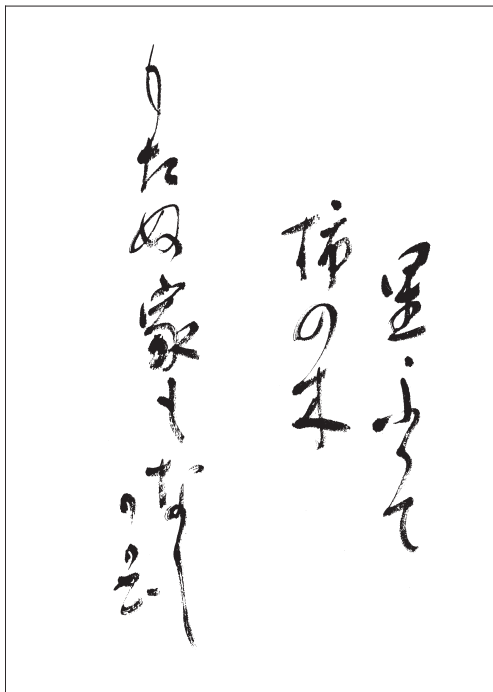 里ふりて
柿の木
もたぬ家もなし